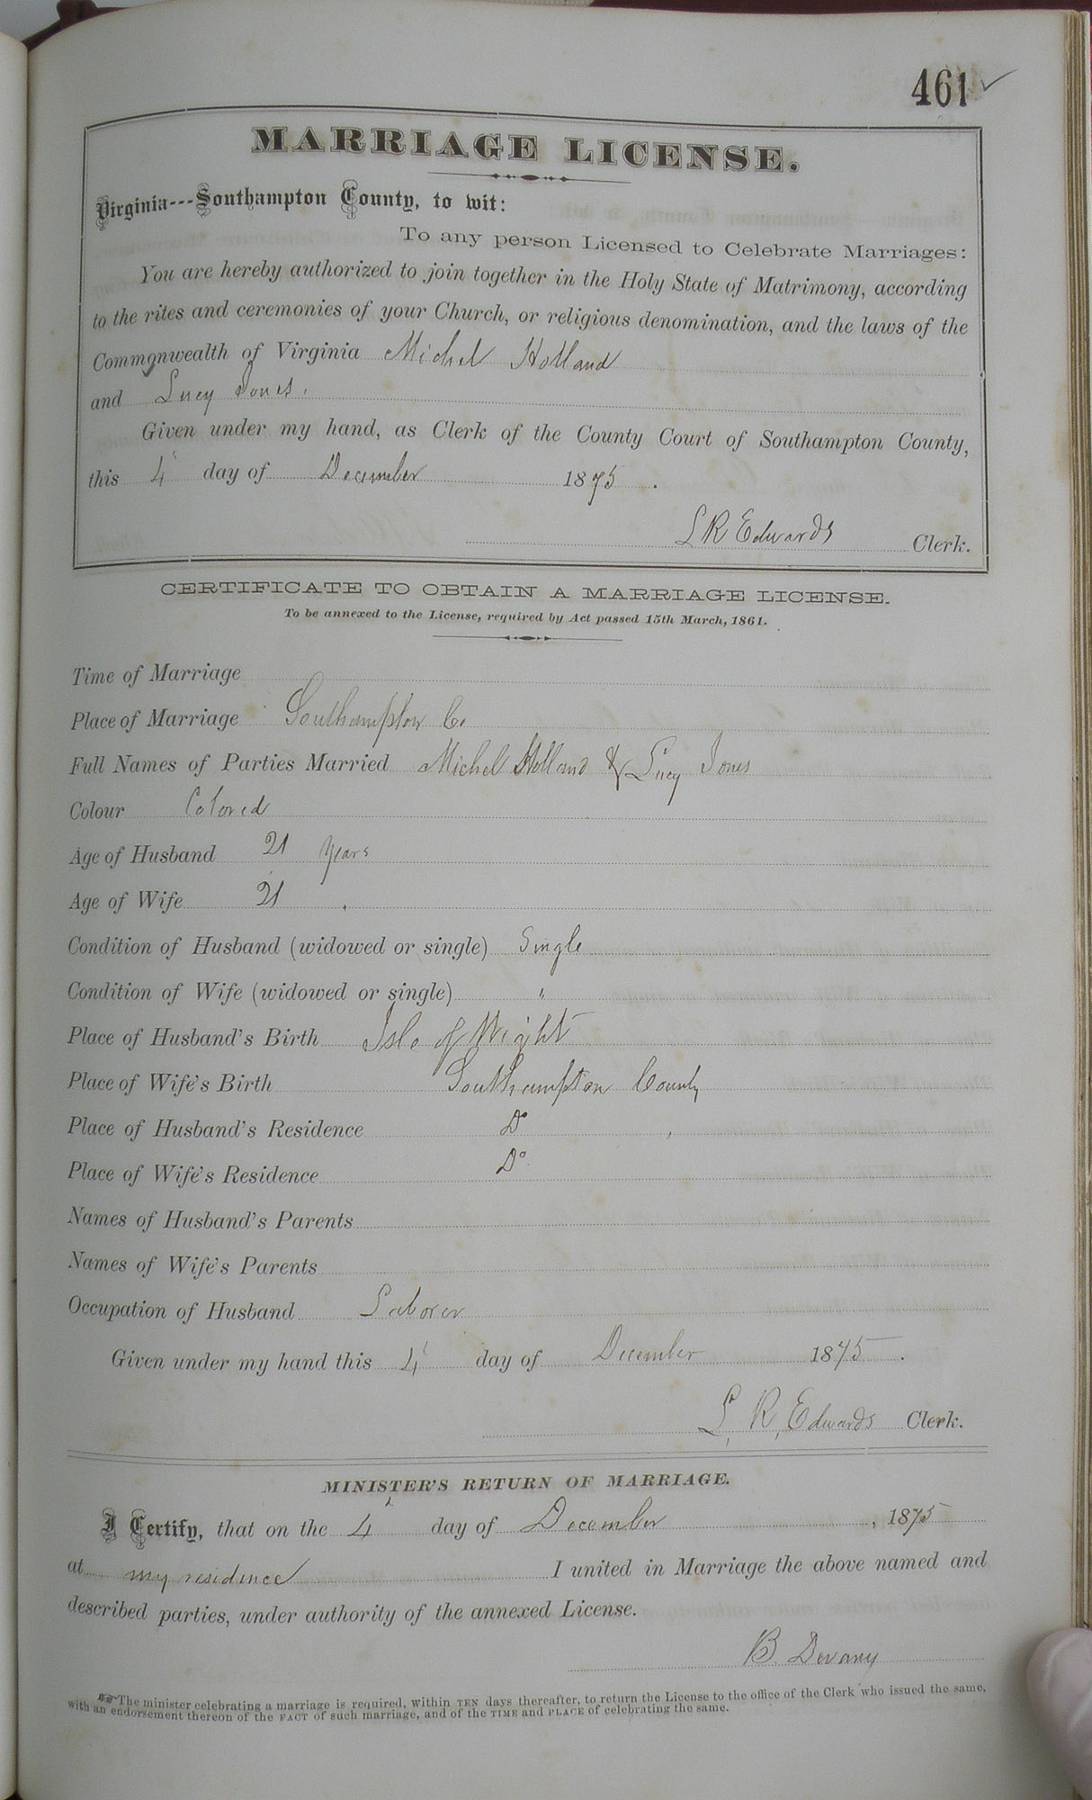 461 ✓
MARRIAGE LICENSE.
Virginia---Southampton County, to wit:
To any person Licensed to Celebrate Marriages:
You are hereby authorized to join together in the Holy State of Matrimony, according
to the rites and ceremonies of your Church, or religious denomination, and the laws of the
Commonwealth of Virginia Michel Holland
and Lucy Jones.
Given under my hand, as Clerk of the County Court of Southampton County,
this 4 day of December 1875.
L R Edwards Clerk.
CERTIFICATE TO OBTAIN A MARRIAGE LICENSE.
To be annexed to the License, required by Act passed 15th March, 1861.
Time of Marriage
Place of Marriage Southampton Co
Full Names of Parties Married Michel Holland & Lucy Jones
Colour Colored
Age of Husband 21 Years
Age of Wife 21
Condition of Husband (widowed or single) Single
Condition of Wife (widowed or single) "
Place of Husband's Birth Isle of Wight
Place of Wife's Birth Southampton County
Place of Husband's Residence Do
Place of Wife's Residence Do
Names of Husband's Parents
Names of Wife's Parents
Occupation of Husband Laborer
Given under my hand this 4 day of December 1875.
L. R. Edwards Clerk.
MINISTER'S RETURN OF MARRIAGE.
I Certify, that on the 4 day of December, 1875
at my residence I united in Marriage the above named and
described parties, under authority of the annexed License.
B. Devany
The minister celebrating a marriage is required, within TEN days thereafter, to return the License to the office of the Clerk who issued the same,
with an endorsement thereon of the FACT of such marriage, and of the TIME and PLACE of celebrating the same.